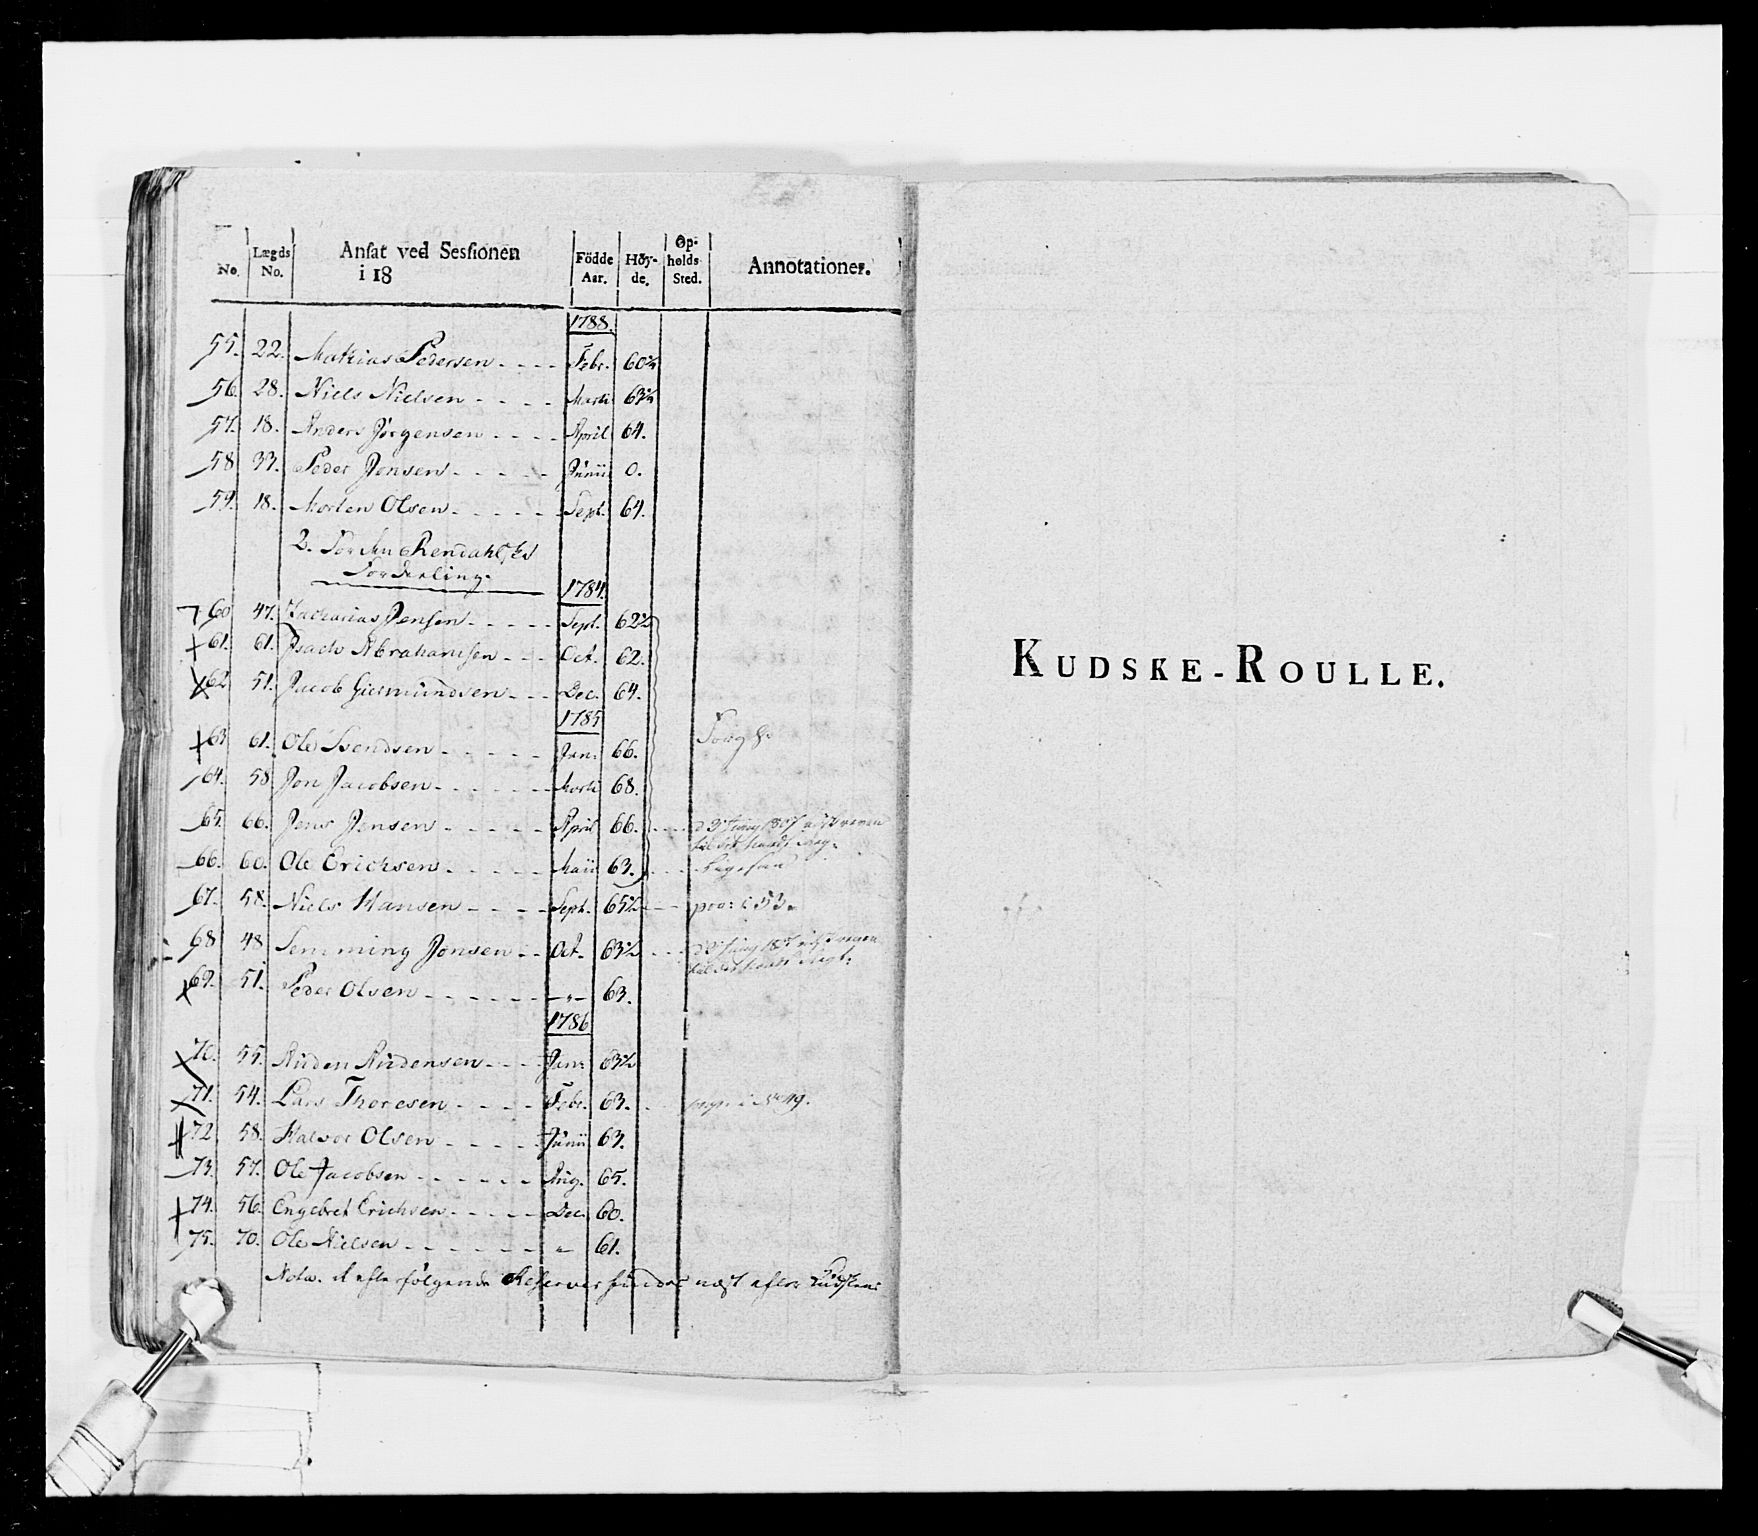 No. | Lægds No. | Ansat ved Sessionen i 18 | Födde Aar. | Höy-de. | Op-holds Sted. | Annotationer.
1788.
55. 22. Mathias Pedersen Febr. 60¾
56. 28. Niels Nielsen Marti 63¾
57. 18. Anders Jörgensen April 64.
58 33. Peder Jensen Junii 0.
59. 18. Morten Olsen Sept. 64.
2. For den Rendahlske
Fordeeling.
1784.
60 47. Zacharias Jensen Sept. 62½
61. 61. Isach Abrahamsen Oct. 62.
62 51. Jacob Giermundsen Dec. 64.
1785
63 61. Ole Svendsen Jan: 66.
64. 58 Jon Jacobsen Marti 68.
65. 66. Jens Jensen April 66.
66. 60. Ole Erichsen Maii 63. Ligesaa
67. 58. Niels Hansen Sept. 65½
68 48 Semming Jonsen Oct. 63½
69. 51. Peder Olsen — " — 63.
1786
70. 55. Auden Audensen Jan: 63½
71. 54. Lars Thoresen Febr. 63. i No 49.
72 58. Halvor Olsen Junii 63.
73. 57. Ole Jacobsen Aug. 65.
74. 56. Engebret Erichsen Dec. 60.
75. 70. Ole Nielsen " 61.
Nota. efterfølgende Reserver findes næst efter Kudskene
KUDSKE-ROULLE.